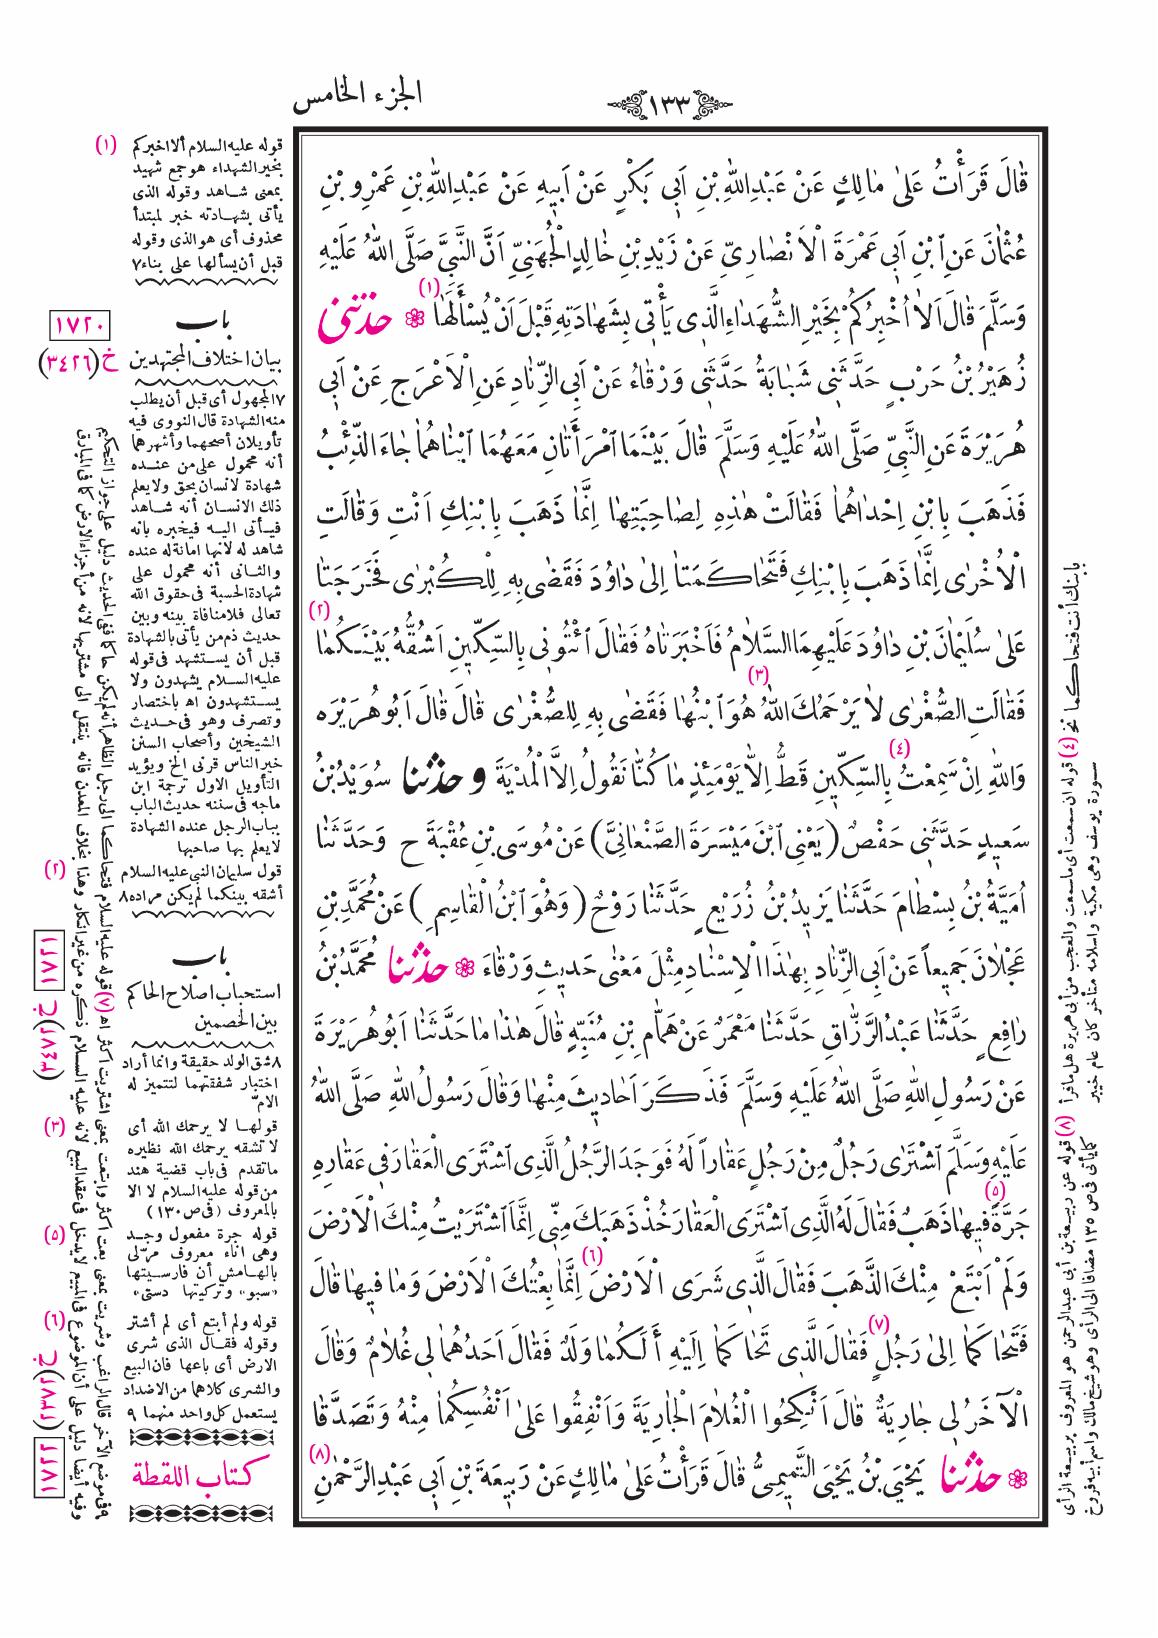 الجزء الخامس
١٣٣
قَالَ قَرَأْتُ عَلىٰ مٰالِكٍ عَنْ عَبْدِ اللّٰهِ بْنِ اَبي بَكْرٍ عَنْ اَبيهِ عَنْ عَبْدِ اللّٰهِ بْنِ عَمْرِو بْنِ
عُثْمٰانَ عَنِ ابْنِ اَبي عَمْرَةَ الْاَنْصٰارِىِّ عَنْ زَيْدِ بْنِ خٰالِدٍ الْجُهَنِىِّ اَنَّ النَّبِىَّ صَلَّى اللّٰهُ عَلَيْهِ
وَسَلَّمَ قٰالَ اَلاٰ اُخْبِرُكُمْ بِخَيْرِ الشُّهَدٰاءِ الَّذى يَأْتى بِشَهٰادَتِهِ قَبْلَ اَنْ يُسْأَلَهٰا (١) ❁ حدثنى
زُهَيْرُ بْنُ حَرْبٍ حَدَّثَنى شَبٰابَةُ حَدَّثَنى وَرْقٰاءُ عَنْ اَبِى الزِّنٰادِ عَنِ الْاَعْرَجِ عَنْ اَبى
هُرَيْرَةَ عَنِ النَّبِىِّ صَلَّى اللّٰهُ عَلَيْهِ وَسَلَّمَ قٰالَ بَيْنَمَا امْرَأَتٰانِ مَعَهُمَا ابْنٰاهُمٰا جٰاءَ الذِّئْبُ
فَذَهَبَ بِابْنِ اِحْدٰاهُمٰا فَقٰالَتْ هٰذِهِ لِصٰاحِبَتِهٰا اِنَّمٰا ذَهَبَ بِابْنِكِ اَنْتِ وَقٰالَتِ
الْاُخْرٰى اِنَّمٰا ذَهَبَ بِابْنِكِ فَتَحٰاكَمَتٰا اِلىٰ دٰاوُدَ فَقَضٰى بِهِ لِلْكُبْرٰى فَخَرَجَتٰا
عَلىٰ سُلَيْمٰانَ بْنِ دٰاوُدَ عَلَيْهِمَا السَّلاٰمُ فَاَخْبَرَتٰاهُ فَقٰالَ ائْتُونى بِالسِّكّينِ اَشُقُّهُ بَيْنَكُمٰا (٢)
فَقٰالَتِ الصُّغْرٰى لاٰ يَرْحَمُكَ اللّٰهُ (٣) هُوَ ابْنُهٰا فَقَضٰى بِهِ لِلصُّغْرٰى قٰالَ قٰالَ اَبُو هُرَيْرَه
وَاللّٰهِ اِنْ سَمِعْتُ (٤) بِالسِّكّينِ قَطُّ اِلاّٰ يَوْمَئِذٍ مٰا كُنّٰا نَقُولُ اِلاَّ الْمُدْيَةَ و حدثنا سُوَيْدُ بْنُ
سَعيدٍ حَدَّثَنى حَفْصٌ ( يَعْنِى ابْنَ مَيْسَرَةَ الصَّنْعٰانِىَّ ) عَنْ مُوسَى بْنِ عُقْبَةَ ح وَحَدَّثَنٰا
اُمَيَّةُ بْنُ بِسْطٰامَ حَدَّثَنٰا يَزيدُ بْنُ زُرَيْعٍ حَدَّثَنٰا رَوْحٌ ( وَهُوَ ابْنُ الْقٰاسِمِ ) عَنْ مُحَمَّدِ بْنِ
عَجْلاٰنَ جَميعاً عَنْ اَبِى الزِّنٰادِ بِهٰذَا الْاِسْنٰادِ مِثْلَ مَعْنٰى حَديثِ وَرْقٰاءَ ❁ حدثنا مُحَمَّدُ بْنُ
رٰافِعٍ حَدَّثَنٰا عَبْدُ الرَّزّٰاقِ حَدَّثَنٰا مَعْمَرٌ عَنْ هَمّٰامِ بْنِ مُنَبِّهٍ قٰالَ هٰذٰا مٰا حَدَّثَنٰا اَبُو هُرَيْرَةَ
عَنْ رَسُولِ اللّٰهِ صَلَّى اللّٰهُ عَلَيْهِ وَسَلَّمَ فَذَكَرَ اَحٰاديثَ مِنْهٰا وَقٰالَ رَسُولُ اللّٰهِ صَلَّى اللّٰهُ
عَلَيْهِ وَسَلَّمَ اشْتَرٰى رَجُلٌ مِنْ رَجُلٍ عَقٰاراً لَهُ فَوَجَدَ الرَّجُلُ الَّذِى اشْتَرَى الْعَقٰارَ فى عَقٰارِهِ
جَرَّةً (٥) فيهٰا ذَهَبٌ فَقٰالَ لَهُ الَّذِى اشْتَرَى الْعَقٰارَ خُذْ ذَهَبَكَ مِنّى اِنَّمَا اشْتَرَيْتُ مِنْكَ الْاَرْضَ
وَلَمْ اَبْتَعْ مِنْكَ الذَّهَبَ فَقٰالَ الَّذى شَرَى الْاَرْضَ (٦) اِنَّمٰا بِعْتُكَ الْاَرْضَ وَمٰا فيهٰا قٰالَ
فَتَحٰاكَمٰا اِلىٰ رَجُلٍ (٧) فَقٰالَ الَّذى تَحٰاكَمٰا اِلَيْهِ أَلَكُمٰا وَلَدٌ فَقٰالَ اَحَدُهُمٰا لى غُلاٰمٌ وَقٰالَ
الْآخَرُ لى جٰارِيَةٌ قٰالَ اَنْكِحُوا الْغُلاٰمَ الْجٰارِيَةَ وَاَنْفِقُوا عَلىٰ اَنْفُسِكُمٰا مِنْهُ وَتَصَدَّقٰا
❁ حدثنا يَحْيَى بْنُ يَحْيَى التَّميمِىُّ قٰالَ قَرَأْتُ عَلىٰ مٰالِكٍ عَنْ رَبيعَةَ بْنِ اَبى عَبْدِ الرَّحْمٰنِ (٨)
(١) قوله عليه السلام ألا اخبركم
بخير الشهداء هو جمع شهيد
بمعنى شاهد وقوله الذى
يأتى بشهادته خبر لمبتدأ
محذوف أى هو الذى وقوله
قبل أن يسألها على بناء ٧
باب
١٧٢٠
بيان اختلاف المجتهدين
خ (٣٤٢٦)
٧ المجهول أى قبل أن يطلب
منه الشهادة قال النووى فيه
تأويلان أصحهما وأشهرهما
أنه محمول على من عنده
شهادة لانسان بحق ولا يعلم
ذلك الانسان أنه شاهد
فيأتى اليه فيخبره بانه
شاهد له لانها امانة له عنده
والثانى أنه محمول على
شهادة الحسبة فى حقوق الله
تعالى فلا منافاة بينه وبين
حديث ذم من يأتى بالشهادة
قبل أن يستشهد فى قوله
عليه السلام يشهدون ولا
يستشهدون اه باختصار
وتصرف وهو فى حديث
الشيخين وأصحاب السنن
خير الناس قرنى الخ ويؤيد
التأويل الاول ترجمة ابن
ماجه فى سننه حديث الباب
بباب الرجل عنده الشهادة
لا يعلم بها صاحبها
(٢) قول سليمان النبى عليه السلام
أشقه بينكما لم يكن مراده ٨
باب
١٧٢١
استحباب اصلاح الحاكم
بين الخصمين
٨ شق الولد حقيقة وانما أراد
اختبار شفقتهما لتتميز له
الام
(٣) قولها لا يرحمك الله أى
لا تشقه يرحمك الله نظيره
ما تقدم فى باب قضية هند
من قوله عليه السلام لا الا
بالمعروف (فى ص ١٣٠)
(٥) قوله جرة مفعول وجد
وهى اناء معروف مر لى
بالهامش أن فارسيتها
«سبو» وتركيتها دستى»
(٦) قوله ولم أبتع أى لم أشتر
وقوله فقال الذى شرى
الارض أى باعها فان البيع
والشرى كلاهما من الاضداد
يستعمل كل واحد منهما ٩
كتاب اللقطة
١٧٢٢
٩ فى موضع الآخر قال الراغب وشريت بمعنى بعت أكثر وابتعت بمعنى اشتريت أكثر اه (٧) قوله عليه السلام فتحاكما الى رجل الظاهر أنه لم يكن حاكما ففى الحديث دليل على جواز التحكيم
وفيه أيضا دليل على أن الموضوع فى المبيع لا يدخل فى عقد البيع لانه عليه السلام ذكره من غير انكار وهذا بخلاف المعدن فانه ينتقل الى مشتريها لانه من أجزاء الارض كما فى المبارق
بابنك أنت فتحاكما نخ (٤) قوله ان سمعت أى ما سمعت والعجب من أبى هريرة هل ما قرأ
سورة يوسف وهى مكية واسلامه متأخر كان عام خيبر
(٨) قوله عن ربيعة بن أبى عبد الرحمن هو المعروف بربيعة الرأى
كما يأتى فى ص ١٣٥ مضافا الى الرأى وهو شيخ مالك واسم أبيه فروخ